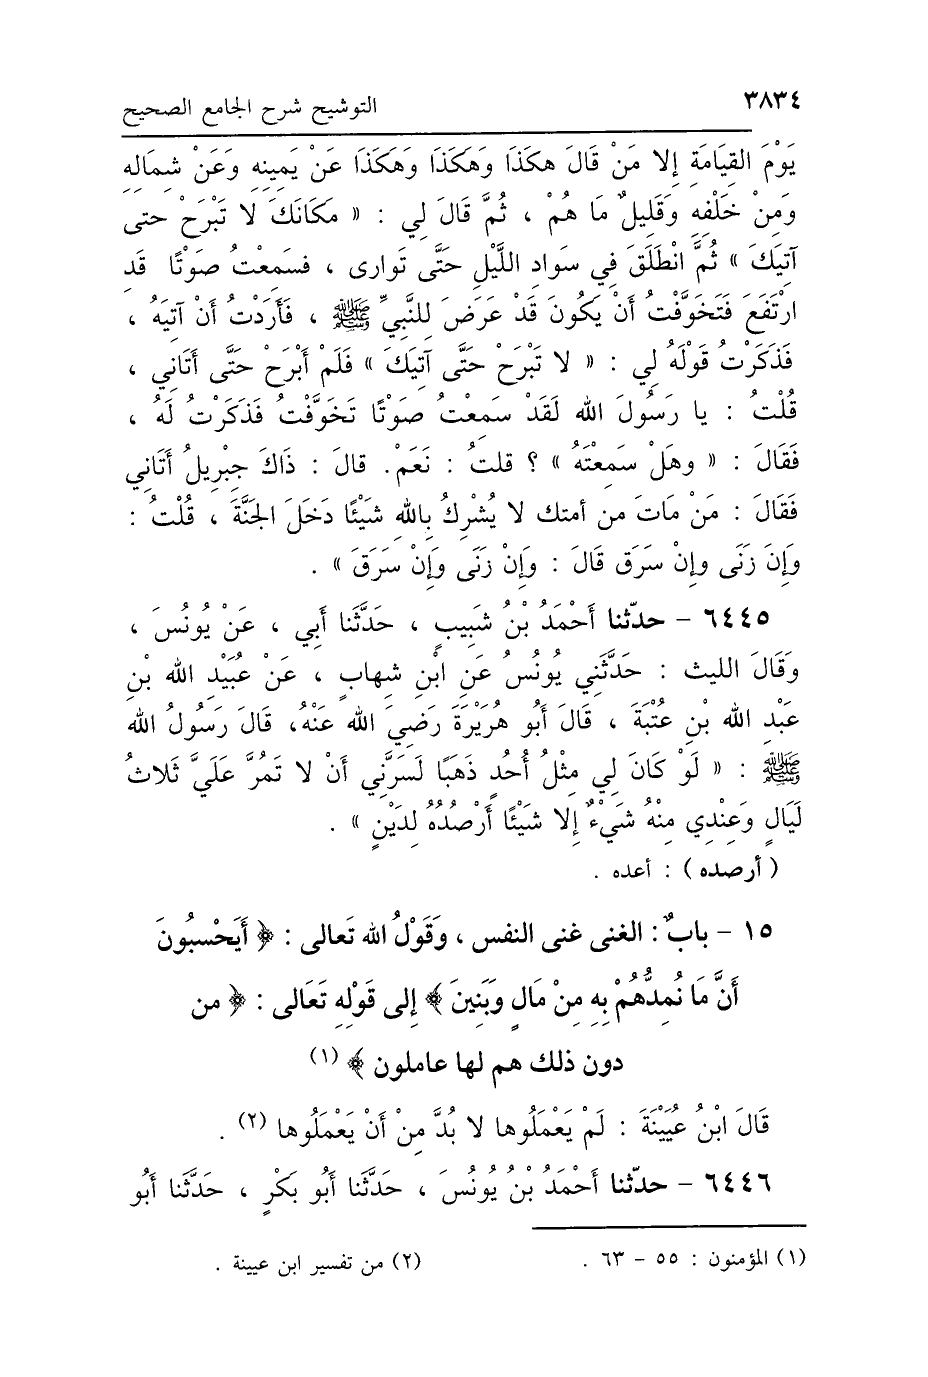 ٣٨٣٤ التوشيح شرح الجامع الصحيح
يَوْمَ القِيَامَةِ إِلا مَنْ قَالَ هكَذَا وَهَكَذَا وَهَكَذَا عَنْ يَمِينِهِ وَعَنْ شمالِهِ
وَمِنْ خَلْفِهِ وَقَلِيلٌ مَا هُمْ ، ثُمَّ قَالَ لِي : « مَكَانَكَ لا تَبْرَحْ حتى
آتِيَكَ » ثُمَّ انْطَلَقَ فِي سَوادِ اللَّيْلِ حَتَّى تَوارى ، فسَمِعْتُ صَوْتًا قَدِ
ارْتَفَعَ فَتَخَوَّفْتُ أَنْ يَكُونَ قَدْ عَرَضَ لِلنَّبِيِّ ﷺ ، فَأَرَدْتُ أَنْ آتِيَهُ ،
فَذَكَرْتُ قَوْلَهُ لِي : « لا تَبْرَحْ حَتَّى آتِيَكَ » فَلَمْ أَبْرَحْ حَتَّى أَتَانِي ،
قُلْتُ : يا رَسُولَ الله لَقَدْ سَمِعْتُ صَوْتًا تَخَوَّفْتُ فَذَكَرْتُ لَهُ ،
فَقَالَ : « وهَلْ سَمِعْتَهُ » ؟ قلتُ : نَعَمْ. قالَ : ذَاكَ جِبْرِيلُ أَتَانِي
فَقَالَ : مَنْ مَاتَ من أمتك لا يُشْرِكُ بِاللهِ شَيْئًا دَخَلَ الجَنَّةَ ، قُلْتُ :
وَإِنَ زَنَى وإنْ سَرَق قَالَ : وَإِنْ زَنَى وَإِنْ سَرَقَ » .
٦٤٤٥ – حدّثنا أَحْمَدُ بْنُ شَبِيبٍ ، حَدَّثَنا أَبِي ، عَنْ يُونُسَ ،
وَقَالَ الليث : حَدَّثَنِي يُونُسُ عَنِ ابْنِ شِهابٍ ، عَنْ عُبَيْدِ الله بْنِ
عَبْدِ الله بْنِ عُتْبَةَ ، قَالَ أَبُو هُرَيْرَةَ رَضِيَ الله عَنْهُ، قَالَ رَسُولُ الله
ﷺ : « لَو كَانَ لِي مِثْلُ أُحُدٍ ذَهَبًا لَسَرَّنِي أَنْ لا تَمُرَّ عَلَيَّ ثَلاثُ
لَيَالٍ وَعِنْدِي مِنْهُ شَيْءٌ إِلا شَيْئًا أَرْصُدُهُ لِدَيْنٍ » .
( أرصده ) : أعده .
١٥ – بابٌ : الغنى غنى النفس ، وَقَوْلُ الله تَعالى : ﴿ أَيَحْسِبُونَ
أَنَّ مَا نُمِدُّهُمْ بِهِ مِنْ مَالٍ وَبَنِينَ ﴾ إلى قَوْلِهِ تَعَالى : ﴿ من
دون ذلك هم لها عاملون ﴾ (١)
قَالَ ابْنُ عُيَيْنَةَ : لَمْ يَعْمَلُوها لا بُدَّ مِنْ أَنْ يَعْمَلُوها (٢) .
٦٤٤٦ – حدّثنا أَحْمَدُ بْنُ يُونُسَ ، حَدَّثَنا أَبُو بَكْرٍ ، حَدَّثَنا أَبُو
(١) المؤمنون : ٥٥ – ٦٣ . (٢) من تفسير ابن عيينة .